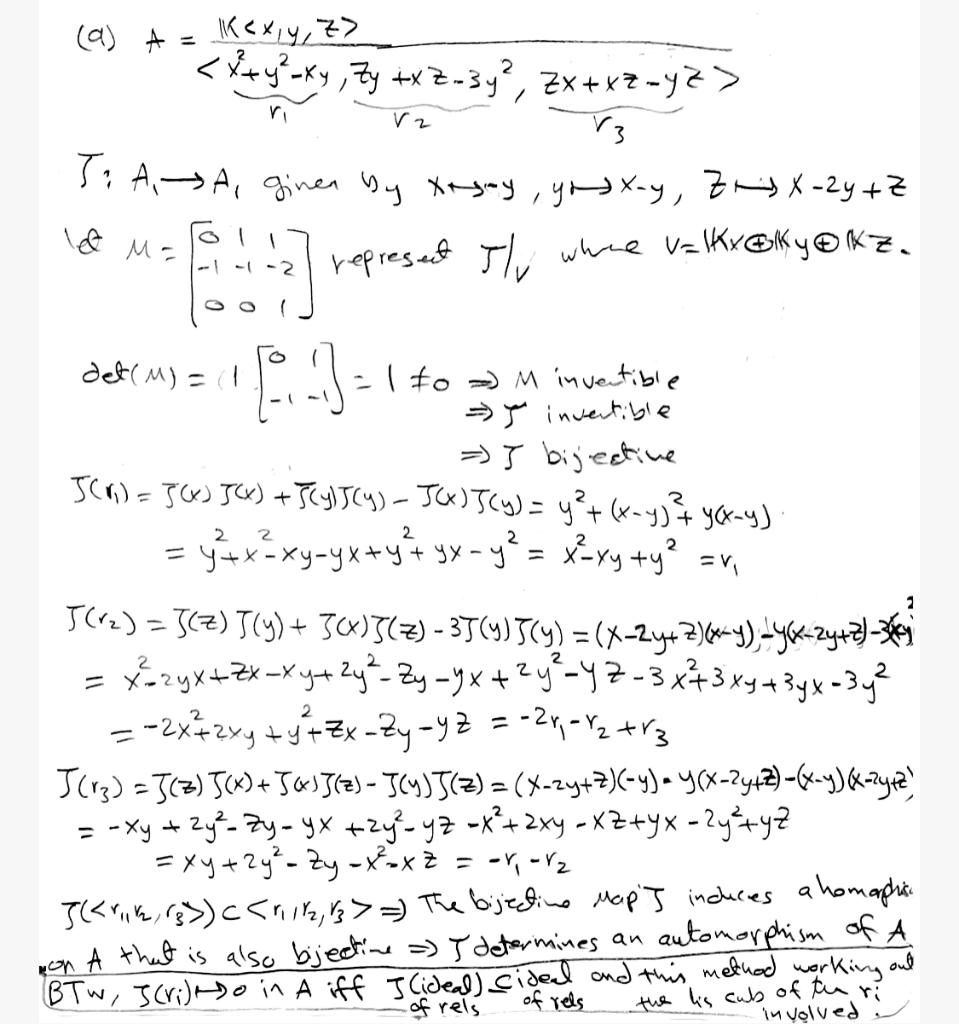 (a) A = K<x,y,z>
<x²+y²-xy, zy+xz-3y², zx+xz-yz>
r₁ r₂ r₃
J: A₁→A₁ given by x↦-y, y↦x-y, z↦x-2y+z
let M = [0 1 1
-1 -1 -2
0 0 1] represent J|ᵥ where V=Kx⊕Ky⊕Kz.
det(M) = 1 [0 1
-1 -1] = 1 ≠0 ⇒ M invertible
⇒ J invertible
⇒ J bijective
J(r₁) = J(x)J(x) + J(y)J(y) - J(x)J(y) = y²+(x-y)²+y(x-y)
= y²+x²-xy-yx+y²+yx-y² = x²-xy+y² = r₁
J(r₂) = J(z)J(y) + J(x)J(z) - 3J(y)J(y) = (x-2y+z)(x-y)-y(x-2y+z)-3(x-y)²
= x²-2yx+zx-xy+2y²-zy-yx+2y²-yz-3x²+3xy+3yx-3y²
= -2x²+2xy+y²+zx-zy-yz = -2r₁-r₂+r₃
J(r₃) = J(z)J(x)+J(x)J(z)-J(y)J(z) = (x-2y+z)(-y)-y(x-2y+z)-(x-y)(x-2y+z)
= -xy+2y²-zy-yx+2y²-yz-x²+2xy-xz+yx-2y²+yz
= xy+2y²-zy-x²-xz = -r₁-r₂
J(<r₁,r₂,r₃>)⊂<r₁,r₂,r₃> ⇒ The bijective map J induces a homomorphism
on A that is also bijective ⇒ J determines an automorphism of A
BTW, J(rᵢ)↦0 in A iff J(ideal of rels) ⊆ ideal of rels and this method working out
the lis cubs of the rᵢ
involved.